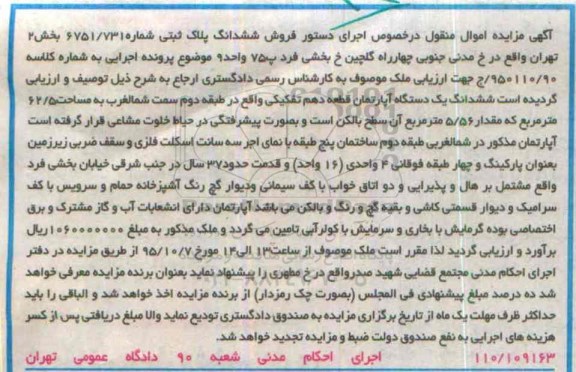 آگهی مزایده اموال منقول درخصوص اجرای دستور فروش ششدانگ پلاک ثبتی شماره۶۷۵۱/۷۳۱ بخش۲
تهران واقع در خ مدنی جنوبی چهارراه گلچین خ بخشی فرد پ۷۵ واحد۹ موضوع پرونده اجرایی به شماره کلاسه
۹۵۰۱۱۰/۹۰/ج جهت ارزیابی ملک موصوف به کارشناس رسمی دادگستری ارجاع به شرح ذیل توصیف و ارزیابی
گردیده است ششدانگ یک دستگاه آپارتمان قطعه دهم تفکیکی واقع در طبقه دوم سمت شمالغرب به مساحت۶۲/۵
مترمربع که مقدار۵/۵۶ مترمربع آن سطح بالکن است و بصورت پیشرفتگی در حیاط خلوت مشاعی قرار گرفته است
آپارتمان مذکور در شمالغربی طبقه دوم ساختمان پنج طبقه با نمای اجر سه سانت اسکلت فلزی و سقف ضربی زیرزمین
بعنوان پارکینگ و چهار طبقه فوقانی ۴ واحدی (۱۶ واحد) و قدمت حدود۳۷ سال در جنب شرقی خیابان بخشی فرد
واقع مشتمل بر هال و پذیرایی و دو اتاق خواب با کف سیمانی ودیوار گچ رنگ آشپزخانه حمام و سرویس با کف
سرامیک و دیوار قسمتی کاشی و بقیه گچ و رنگ و بالکن می باشد آپارتمان دارای انشعابات آب و گاز مشترک و برق
اختصاصی بوده گرمایش با بخاری و سرمایش با کولرآبی تامین می گردد و ملک مذکور به مبلغ ۱۰۶۰۰۰۰۰۰۰ریال
برآورد و ارزیابی گردید لذا مقرر است ملک موصوف از ساعت۱۲ الی۱۳ مورخ۹۵/۱۰/۷ از طریق مزایده در دفتر
اجرای احکام مدنی مجتمع قضایی شهید صدرواقع در خ مطهری را پیشنهاد نماید بعنوان برنده مزایده معرفی خواهد
شد ده درصد مبلغ پیشنهادی فی المجلس (بصورت چک رمزدار) از برنده مزایده اخذ خواهد شد و الباقی را باید
حداکثر ظرف مهلت یک ماه از تاریخ برگزاری مزایده به صندوق دادگستری تودیع نماید والا مبلغ دریافتی پس از کسر
هزینه های اجرایی به نفع صندوق دولت ضبط و مزایده تجدید خواهد شد.
۱۱۰/۱۰۹۱۶۳ اجرای احکام مدنی شعبه ۹۰ دادگاه عمومی تهران